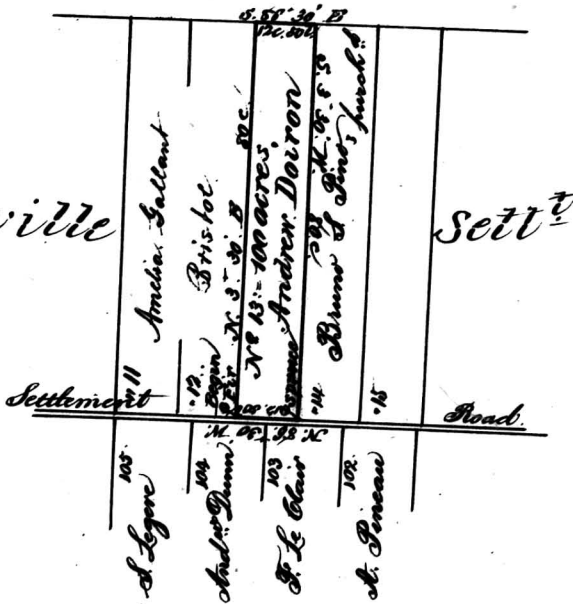 S. 86° 30' E
12c. 50l.
ville
Settt
11
Amelia Gallant
12
Bristol
Begin
Fir
N. 3° 30' E
80 c.
No 13 = 100 acres,
Andrew Doiron
Spruce
S. 3° 30' W.
80 c
14
Bruno S Pino's purchd
15
Settlement
Road.
N. 86° 30' W.
105
S. Legere
104
Andw Dunn
103
F. Le Clair
102
A. Pineau